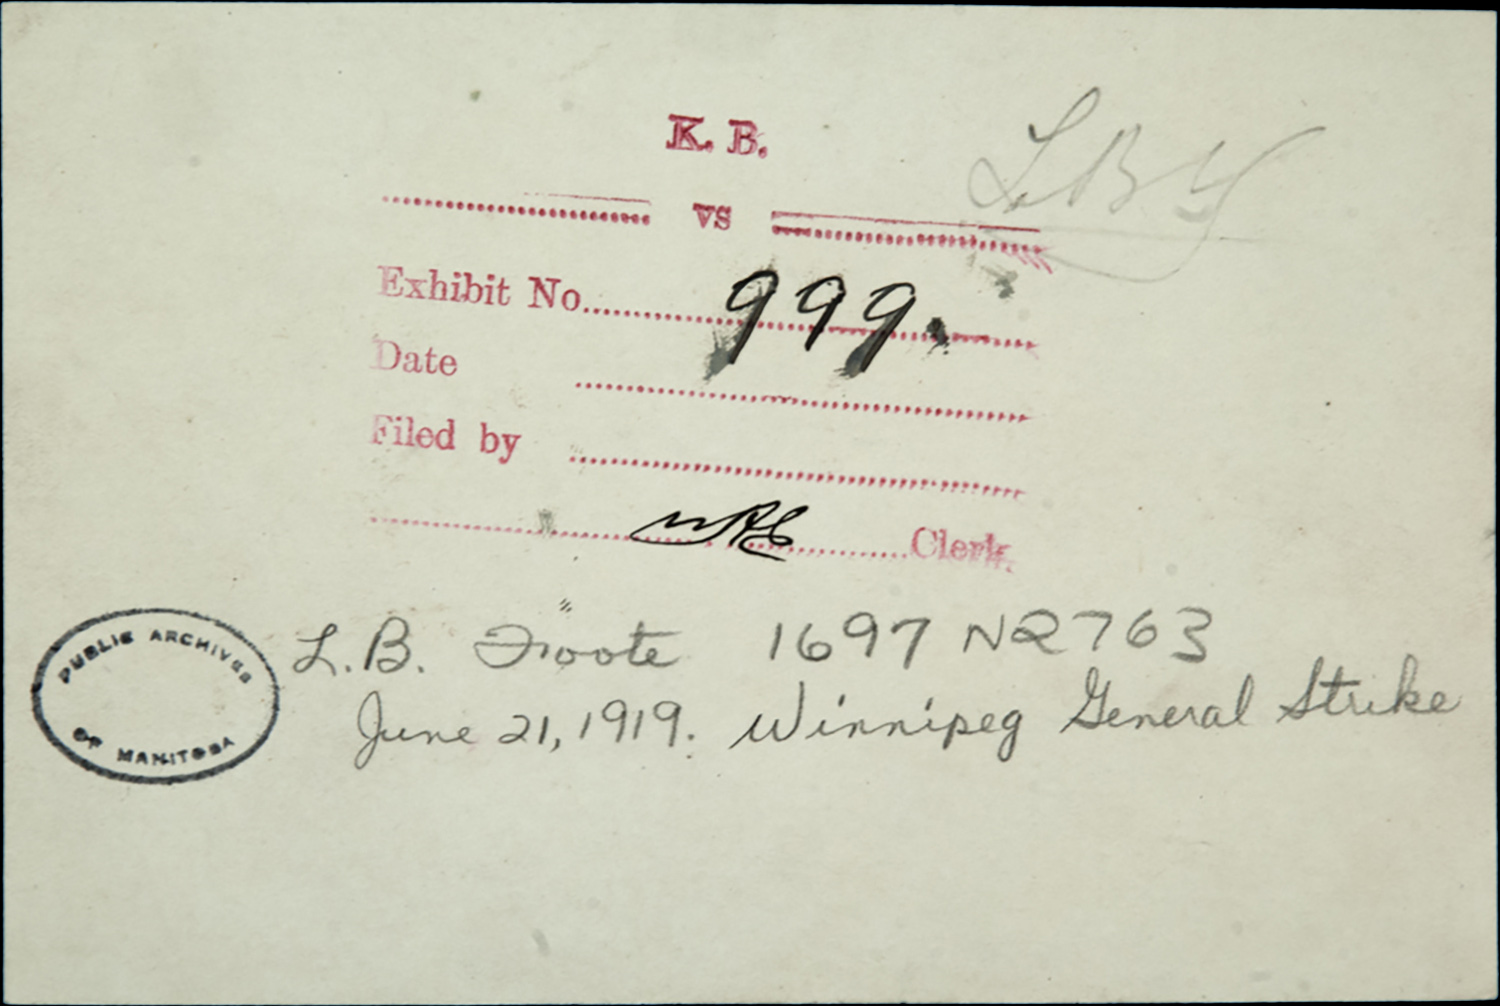 K. B.
vs
Exhibit No. 999.
Date
Filed by
Clerk.
PUBLIC ARCHIVES
OF MANITOBA
L. B. Foote 1697 N2763
June 21, 1919. Winnipeg General Strike